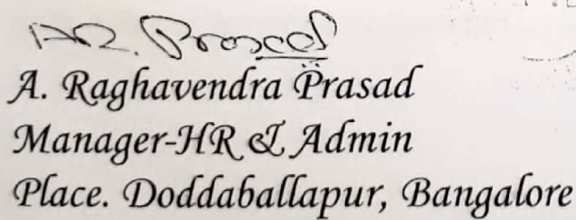 AR. Prasad
A. Raghavendra Prasad
Manager-HR & Admin
Place. Doddaballapur, Bangalore